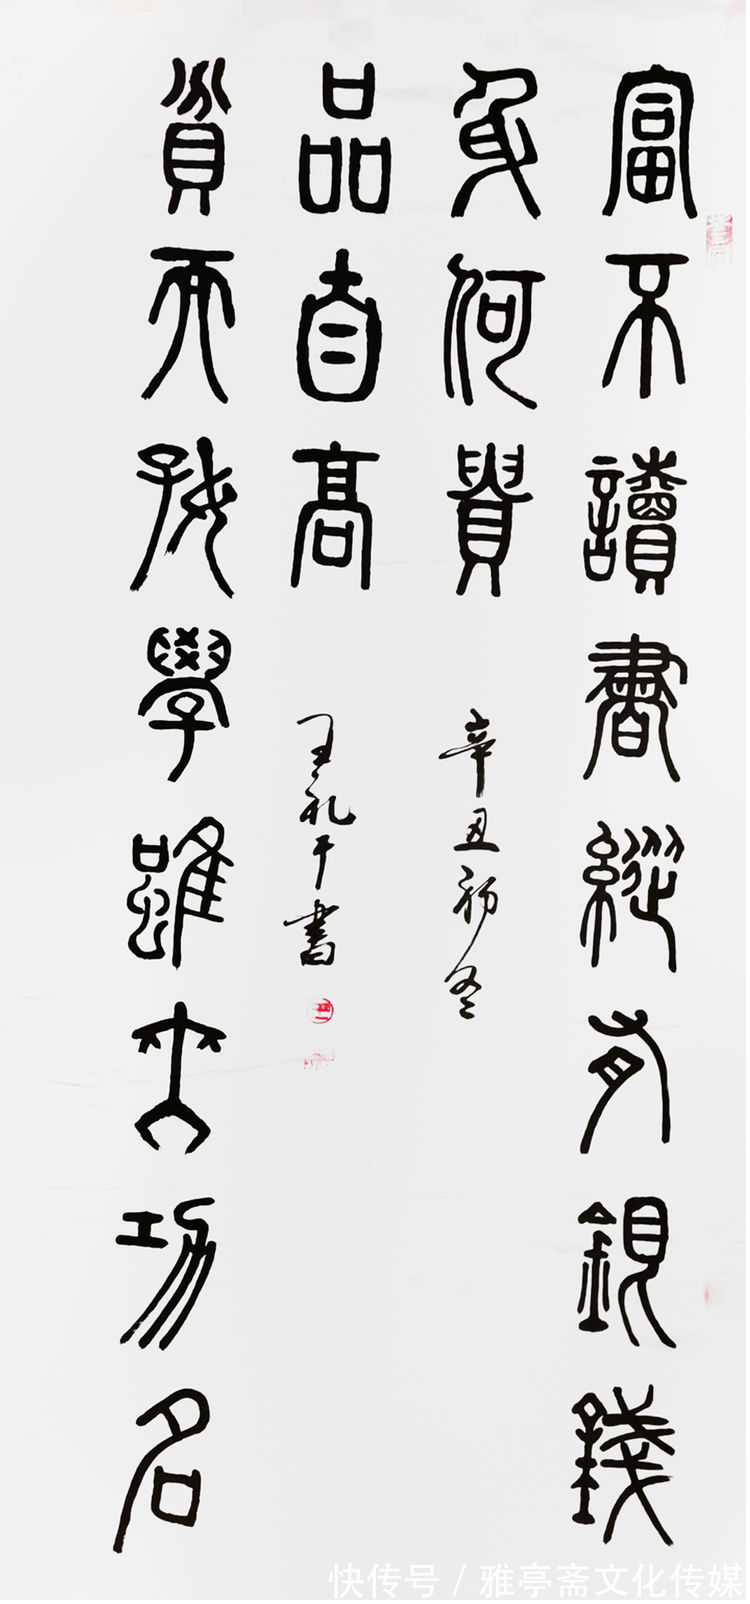 富不讀書縱有銀錢
身何貴
辛丑初冬
貧而好學雖無功名
品自高
王礼干書
快传号 / 雅亭斋文化传媒